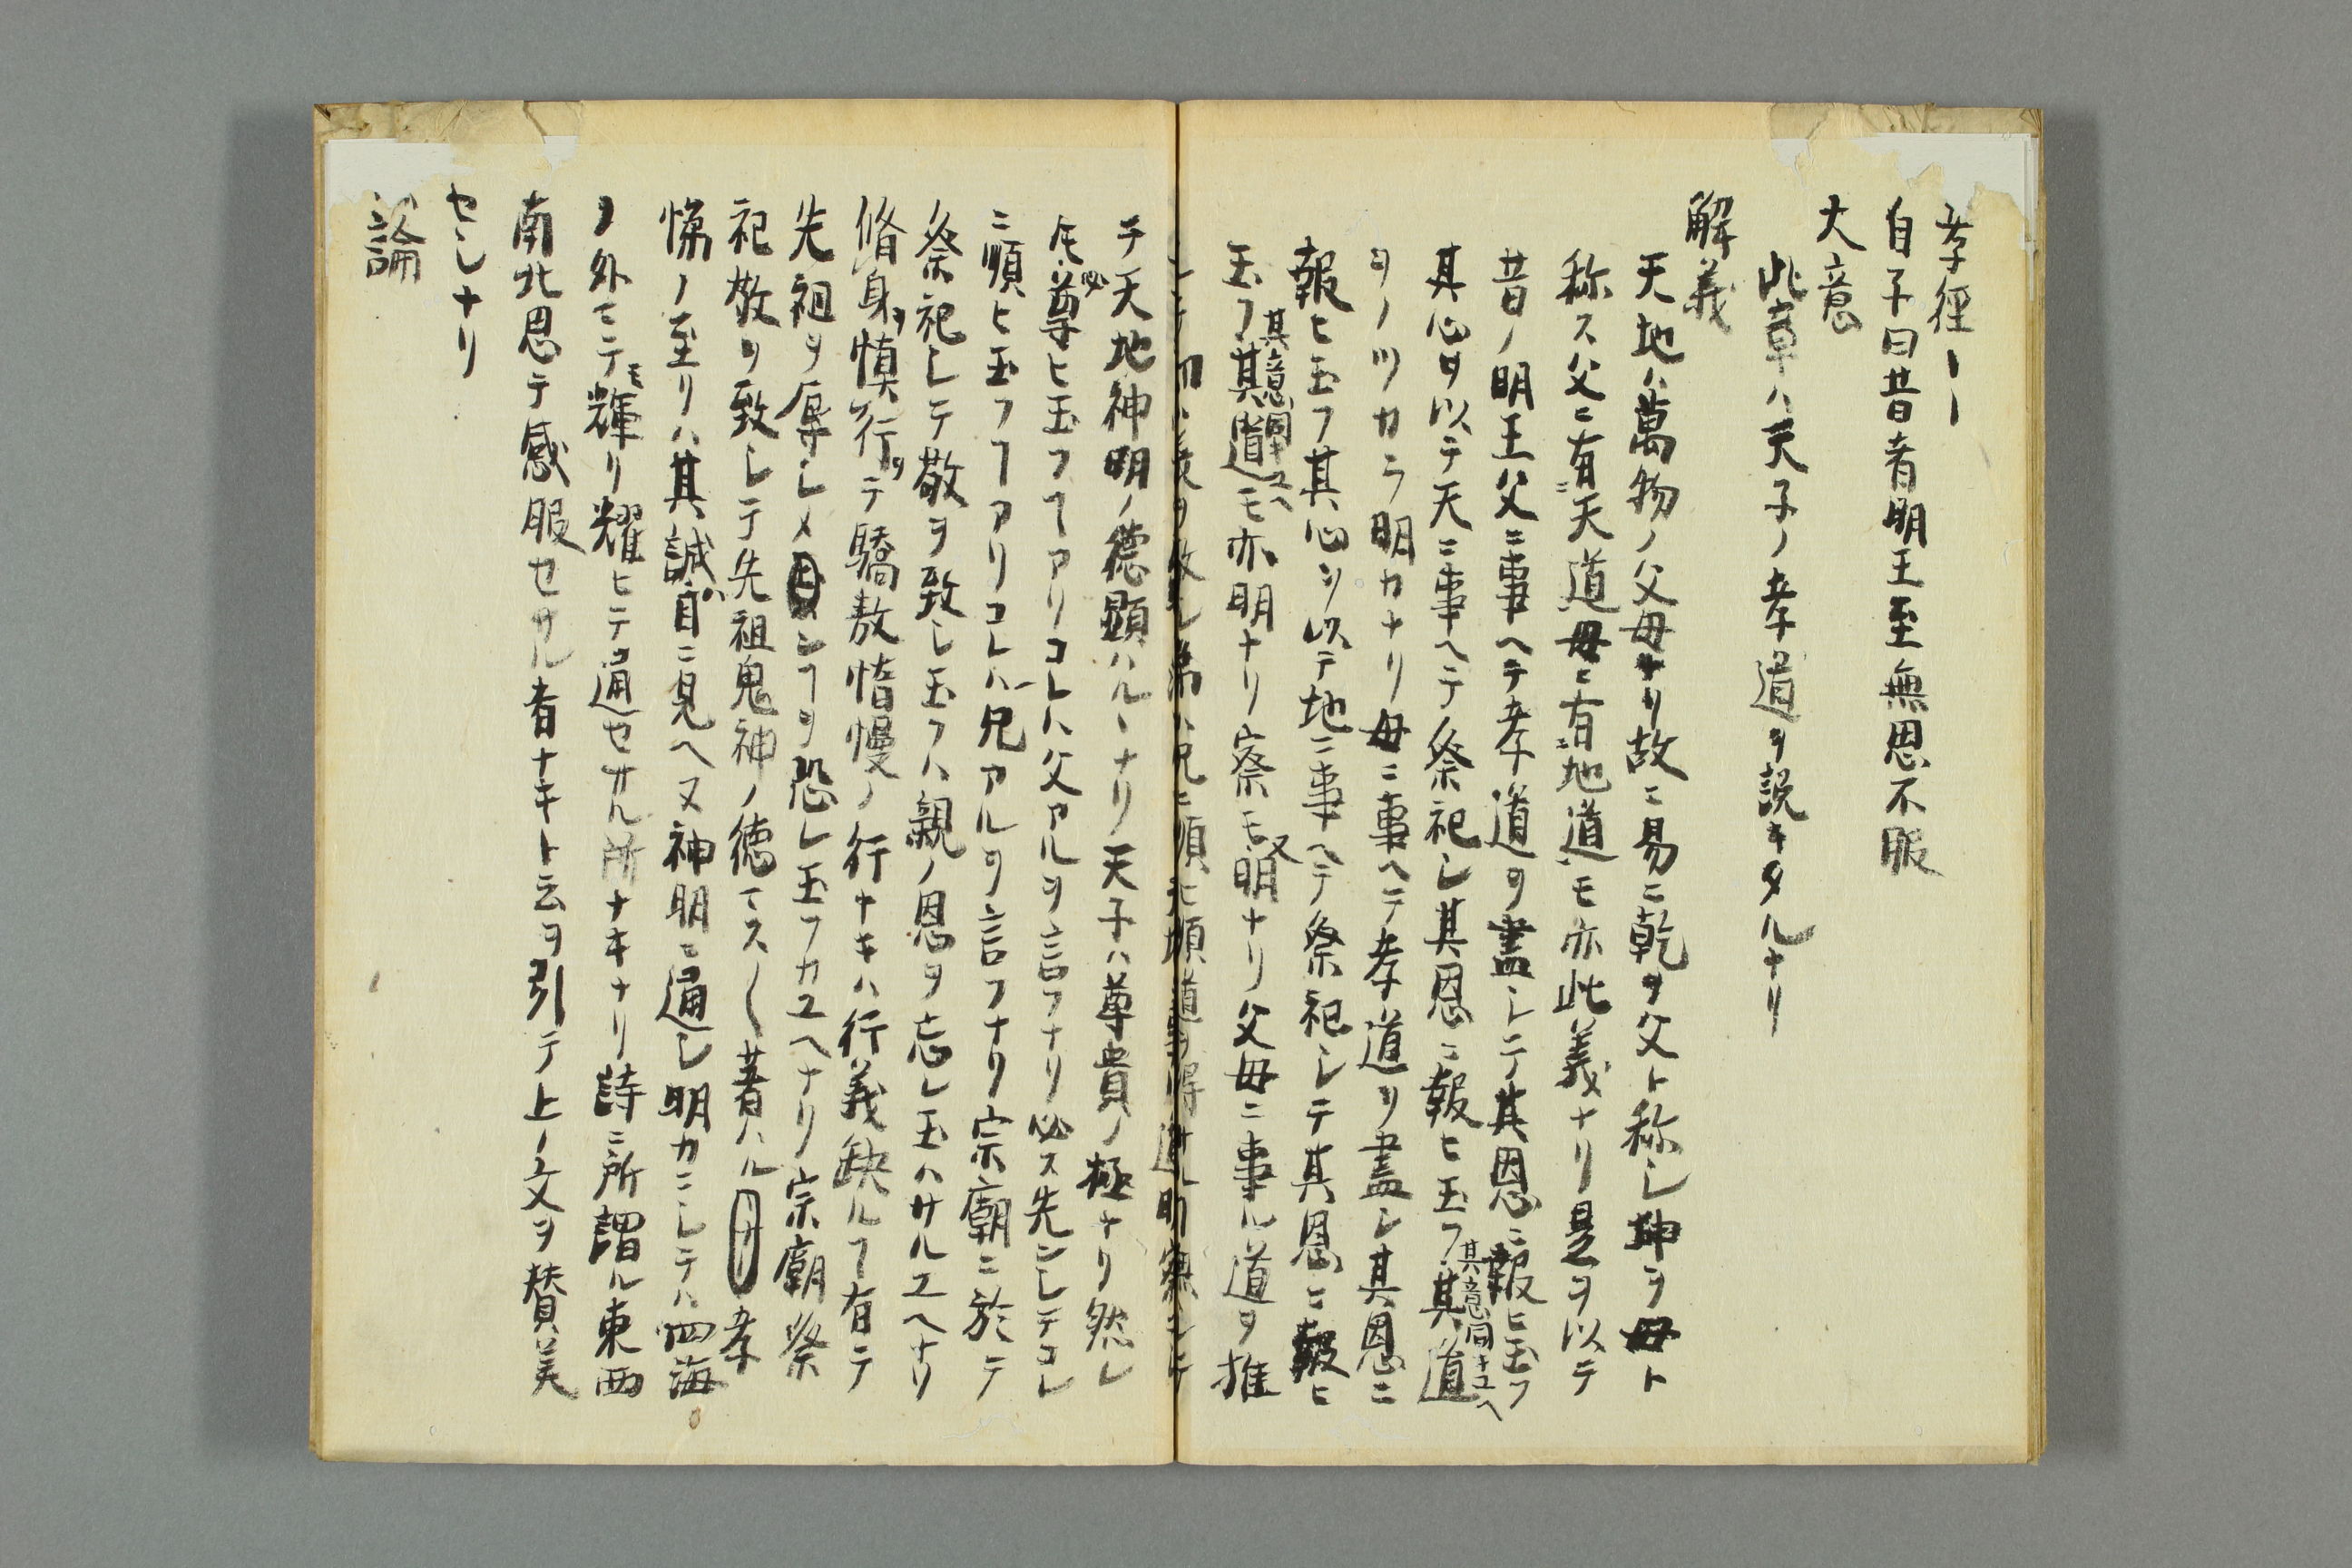 孝経――
自子曰昔者明王至無思不服
大意
此章ハ天子ノ孝道ヲ説キタルナリ
解義
天地ハ萬物ノ父母ナリ故ニ易ニ乾ヲ父ト称シ坤ヲ母ト
称ス父ニ有ニ天道母ニ有ニ地道モ亦此義ナリ是ヲ以テ
昔ノ明王父ニ事ヘテ孝道ヲ盡シテ其恩ニ報ヒ玉フ
其心ヲ以テ天ニ事ヘテ祭祀シ其恩ニ報ヒ玉フ其意同キユヘ其道
ヲノツカラ明カナリ母ニ事ヘテ孝道ヲ盡シ其恩ニ
報ヒ玉フ其心ヲ以テ地ニ事ヘテ祭祀シテ其恩ニ報ヒ
玉フ其意同キユヘ其道モ亦明ナリ察モ又明ナリ父母ニ事ル道ヲ推
シテ幼ハ長ヲ敬シ弟ハ兄ニ順ヒ順道ヲ得
テ天地神明ノ德顕ハルヽナリ天子ハ尊貴ノ極ナリ然レ
𪜈必尊ヒ玉フヿアリコレハ父アルヲ言フナリ必ス先ンシテコレ
ニ順ヒ玉フヿアリコレハ兄アルヲ言フナリ宗廟ニ於テ
祭祀シテ敬ヲ致シ玉フハ親ノ恩ヲ忘レ玉ハサルユヘナリ
脩身ヲ慎行ヲテ驕敖惰慢ノ行ナキハ行義缺ルヿ有テ
先祖ヲ辱シメンヿヲ恐レ玉フカユヘナリ宗廟祭
祀敬ヲ致シテ先祖鬼神ノ徳マス〱著ハル孝
悌ノ至リハ其誠ハ自ニ見ヘ又神明ニ通シ明カニシテハ四海
ノ外マテモ輝リ耀ヒテ通セサル所ナキナリ詩ニ所謂ル東西
南北思テ感服セサル者ナキト云ヲ引テ上ノ文ヲ賛美
セシナリ
論